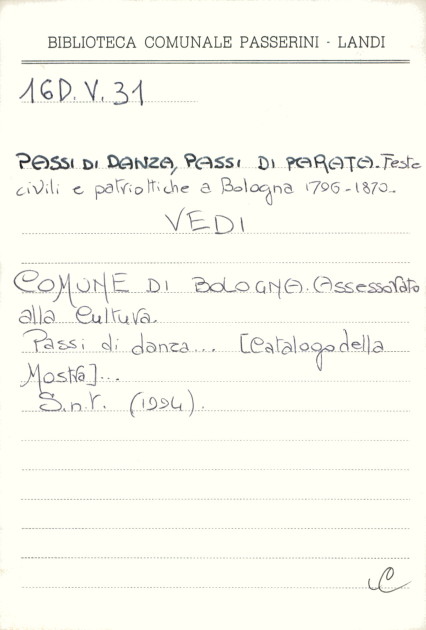 BIBLIOTECA COMUNALE PASSERINI - LANDI
16D. V. 31
PASSI DI DANZA, PASSI DI PARATA. Feste
civili e patriottiche a Bologna 1796-1870.
VEDI
COMUNE DI BOLOGNA. Assessorato
alla Cultura.
Passi di danza... [Catalogo della
Mostra]...
S.n.t. (1994).
C